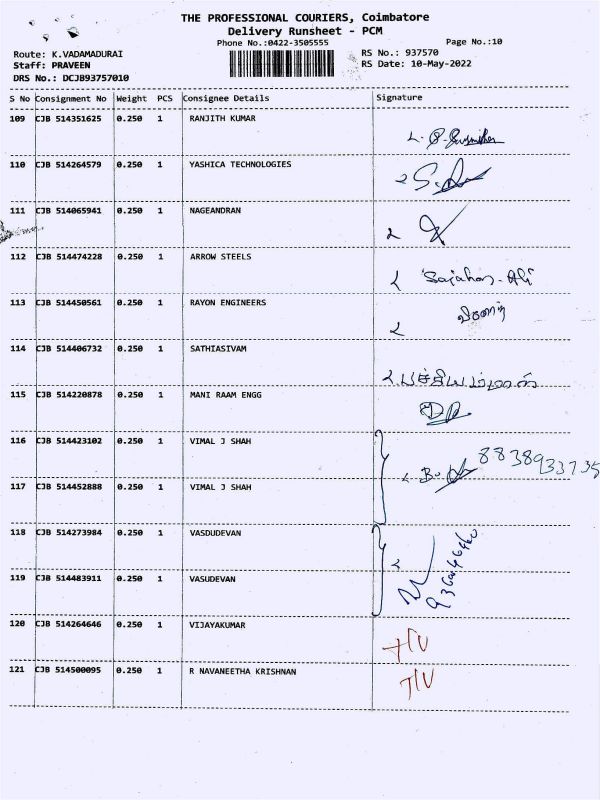 THE PROFESSIONAL COURIERS, Coimbatore
Delivery Runsheet - PCM
Phone No.:0422-3505555
Page No.:10
Route: K.VADAMADURAI
RS No.: 937570
Staff: PRAVEEN
RS Date: 10-May-2022
DRS No.: DCJB93757010
S No Consignment No Weight PCS Consignee Details Signature
109 CJB 514351625 0.250 1 RANJITH KUMAR
110 CJB 514264579 0.250 1 YASHICA TECHNOLOGIES
111 CJB 514065941 0.250 1 NAGEANDRAN
112 CJB 514474228 0.250 1 ARROW STEELS Sajahan-Ali
113 CJB 514450561 0.250 1 RAYON ENGINEERS
114 CJB 514406732 0.250 1 SATHIASIVAM
115 CJB 514220878 0.250 1 MANI RAAM ENGG
116 CJB 514423102 0.250 1 VIMAL J SHAH 8838933735
117 CJB 514452888 0.250 1 VIMAL J SHAH
118 CJB 514273984 0.250 1 VASDUDEVAN
119 CJB 514483911 0.250 1 VASUDEVAN
120 CJB 514264646 0.250 1 VIJAYAKUMAR
121 CJB 514500095 0.250 1 R NAVANEETHA KRISHNAN